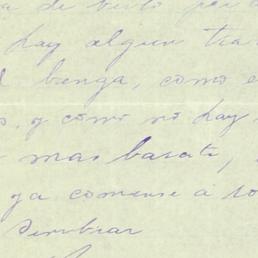 a de berlo por
hay algun tra
benga, como e
y como no hay
mas barato,
ya comense a so
Sembrar